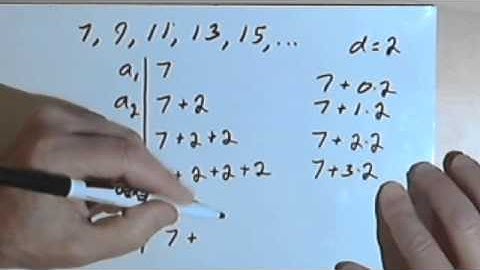 7, 9, 11, 13, 15, ...
d = 2
a₁ 7
7 + 0·2
a₂ 7 + 2
7 + 1·2
7 + 2 + 2
7 + 2·2
+ 2 + 2 + 2
7 + 3·2
7 +